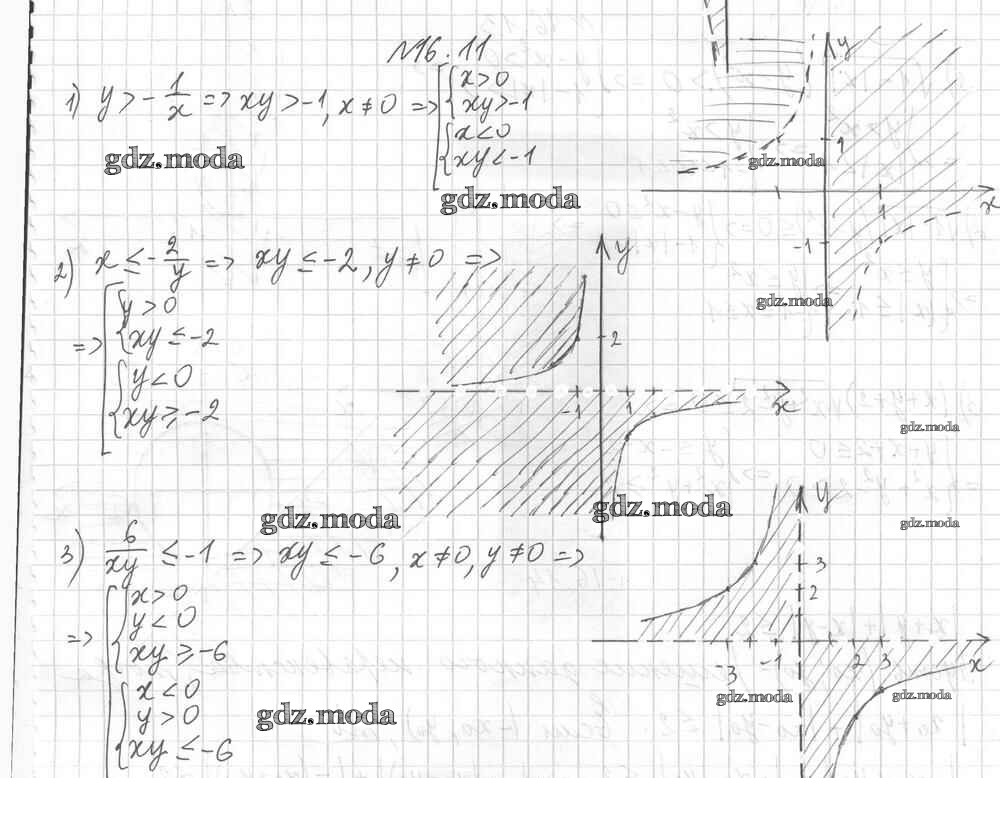 №16.11
1) y > -1/x => xy > -1, x ≠ 0 => [ { x > 0
{ xy > -1
{ x < 0
{ xy < -1
gdz.moda
gdz.moda
y
1
gdz.moda
1
x
-1
gdz.moda
2) x ≤ -2/y => xy ≤ -2, y ≠ 0 =>
=> [ { y > 0
{ xy ≤ -2
{ y < 0
{ xy ≥ -2
y
2
-1
1
x
gdz.moda
gdz.moda
gdz.moda
gdz.moda
3) 6/xy ≤ -1 => xy ≤ -6, x ≠ 0, y ≠ 0 =>
=> [ { x > 0
{ y < 0
{ xy ≥ -6
{ x < 0
{ y > 0
{ xy ≤ -6
gdz.moda
y
3
2
-3
-1
2
3
x
gdz.moda
gdz.moda